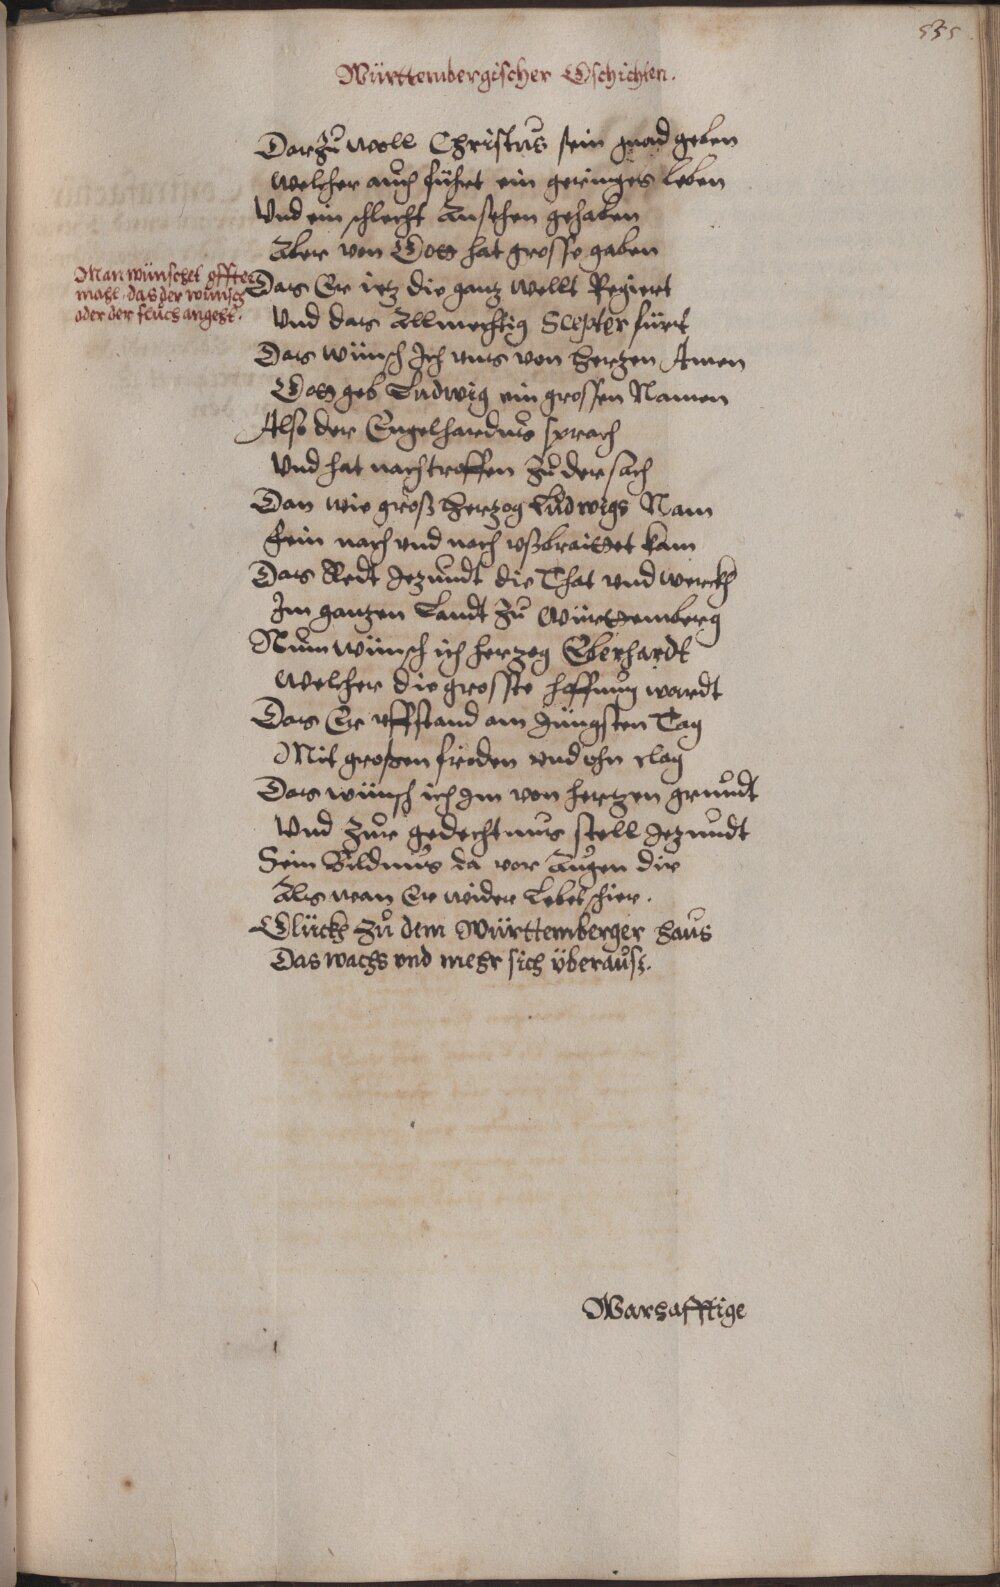 535
Württembergischer Gschichten.
Darzů woll Christus sein gnad geben
Welcher auch führt ein geringes leben
Vnd ein schlecht Ansehen gehaben
Aber von Gott hat grosse gaben
Man wünschet offter
mahl, das der wunsch
oder der fluch angeht.
Das Er ietz die gantz Wellt Regiert
Vnd das Allmechtig Scepter fürt
Das wünsch Ich vns von hertzen Amen
Gott geb Ludwig ein grossen Namen
Also der Engelhardus sprach
Vnd hat nach troffen zů der sach
Dan wie groß Hertzog Ludwigs Nam
Fein nach vnd nach vßbraittet kam
Das Redt Jezundt die That vnd werckh
Im gantzen Landt zů Württemberg
Nun wünsch ich hertzog Eberhardt
Welcher die groste hoffnung wardt
Das Er vffstand am Jüngsten Tag
Mit großen friden vnd ohn clag
Das wünsch ich Im von hertzen grundt
Vnd zur gedechtnus stell Jezundt
Sein Bildnus da vor Augen dir
Als wan Er wider Lebet schier.
Glückh zů dem Württemberger Haus
Das wachs vnd mehr sich überausz.
Warhafftige